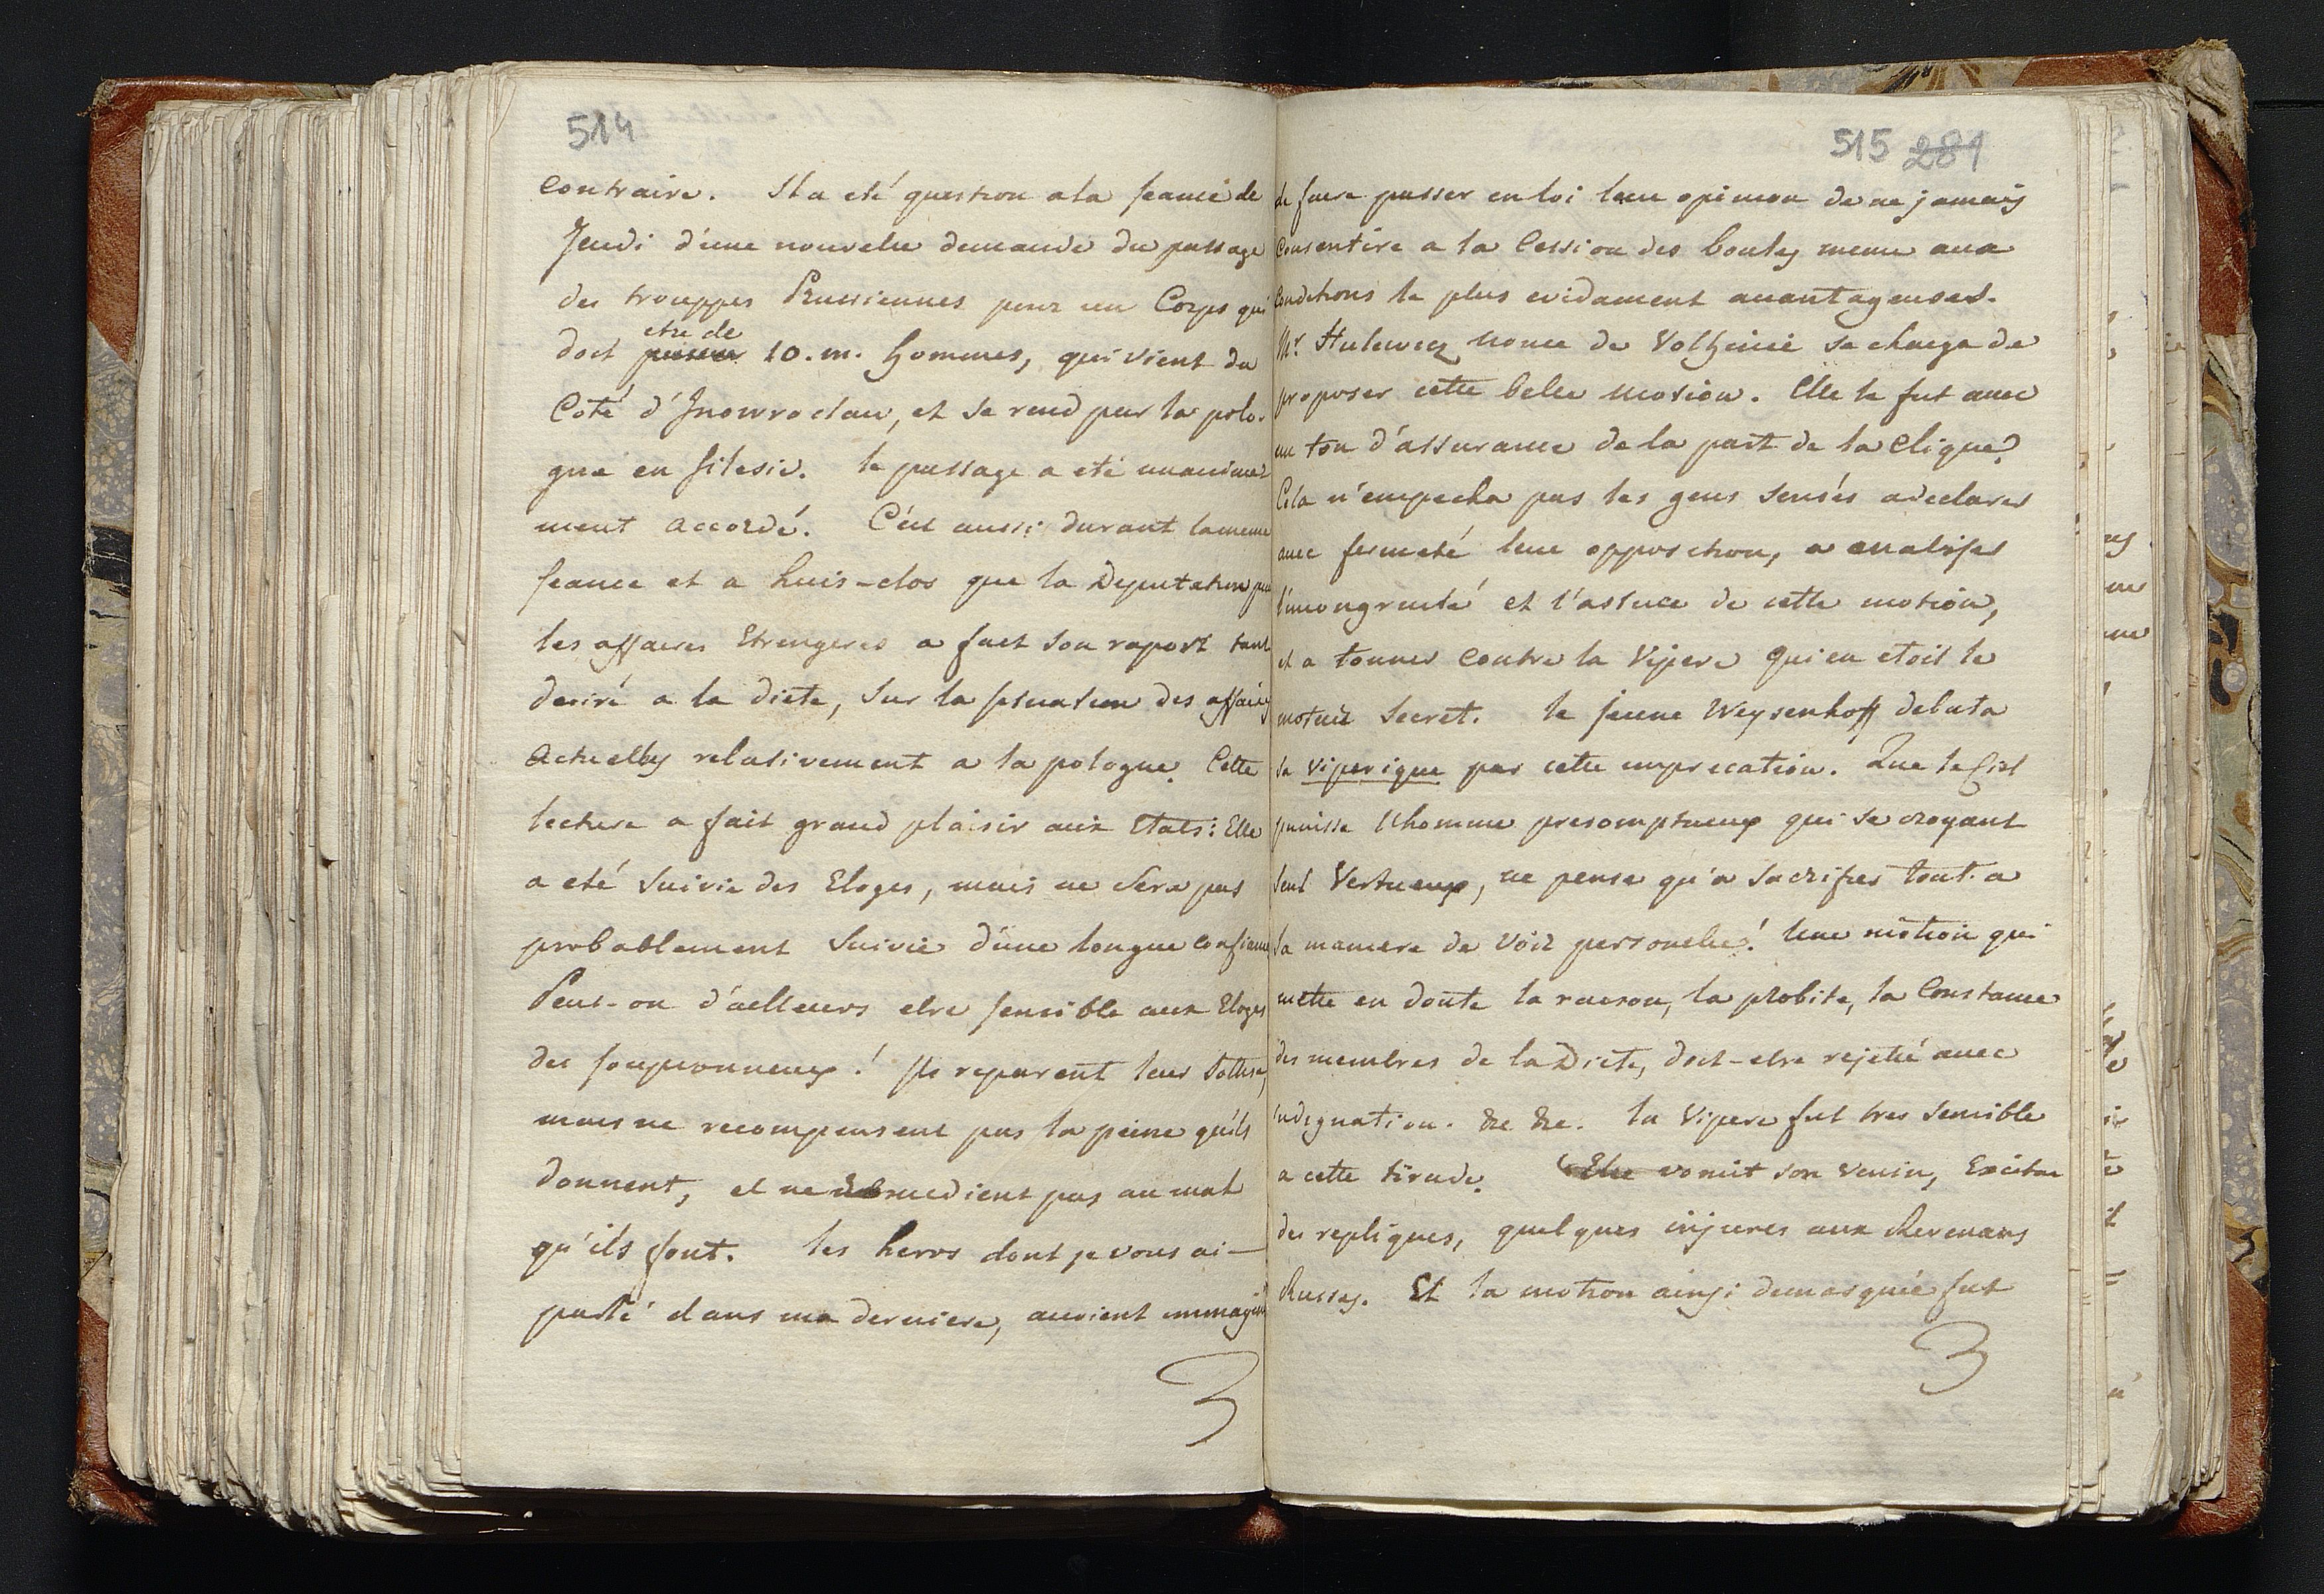 514
contraire. Il a eté question a la seance de
Jeudi d'une nouvelle demande du passage
des trouppes Prussiennes pour un Corps qui
etre de
doit passer 10. m. hommes, qui vient du
Coté d'Inowroclaw, et se rend par la polo-
gne en silesie. le passage a eté unanime-
ment accordé. C'est aussi durant la meme
seance et a huis-clos que la Deputation pour
les affaires Etrengeres a fait son raport tant
desiré a la diete, sur la situation des affaires
actuelles relativement a la pologne. Cette
lecture a fait grand plaisir aux Etats: Elle
a eté suivie des Eloges, mais ne sera pas
probablement suivie d'une longue confience
Peut-on d'ailleurs etre sensible aux Eloges
des soupçonneux! Ils reparent leur sottise,
mais ne recompensent pas la peine qu'ils
donnent, et ne remedient pas au mal
qu'ils font. les heros dont je vous ai-
parlé dans ma derniere, avoient immaginé
3
515 281
de faire passer en loi leur opinion de ne jamais
Consentire a la Cession des boules meme aux
Conditions le plus evidament avantageuses.
Mr. Hulewicz nonce de Volhinie se chargea de
proposer cette belle motion. Elle le fut avec
un ton d'assurance de la part de la Clique.
Cela n'empecha pas les gens sensés a declarer
avec fermeté leur opposition, a analiser
l'incongruité et l'astuce de cette motion,
et a tonner contre la Vipere qui en etoit le
moteur secret. le jeune Weysenhoff debuta
sa viperique par cette imprecation. Que le Ciel
punisse l'homme presomptueux qui se croyant
seul Vertueux, ne pense qu'a sacrifier tout a
sa maniere de voir personelle! Une motion qui
mette en doute la raison, la probite, la Constance
des membres de la Diete, doit-etre rejetté avec
indignation. &c &c. la Vipere fut tres sensible
a cette tirade. Elle vomit son venin, Excita
des repliques, quelques injures aux Revenans
Russes. Et la motion ainsi demasquée fut
3